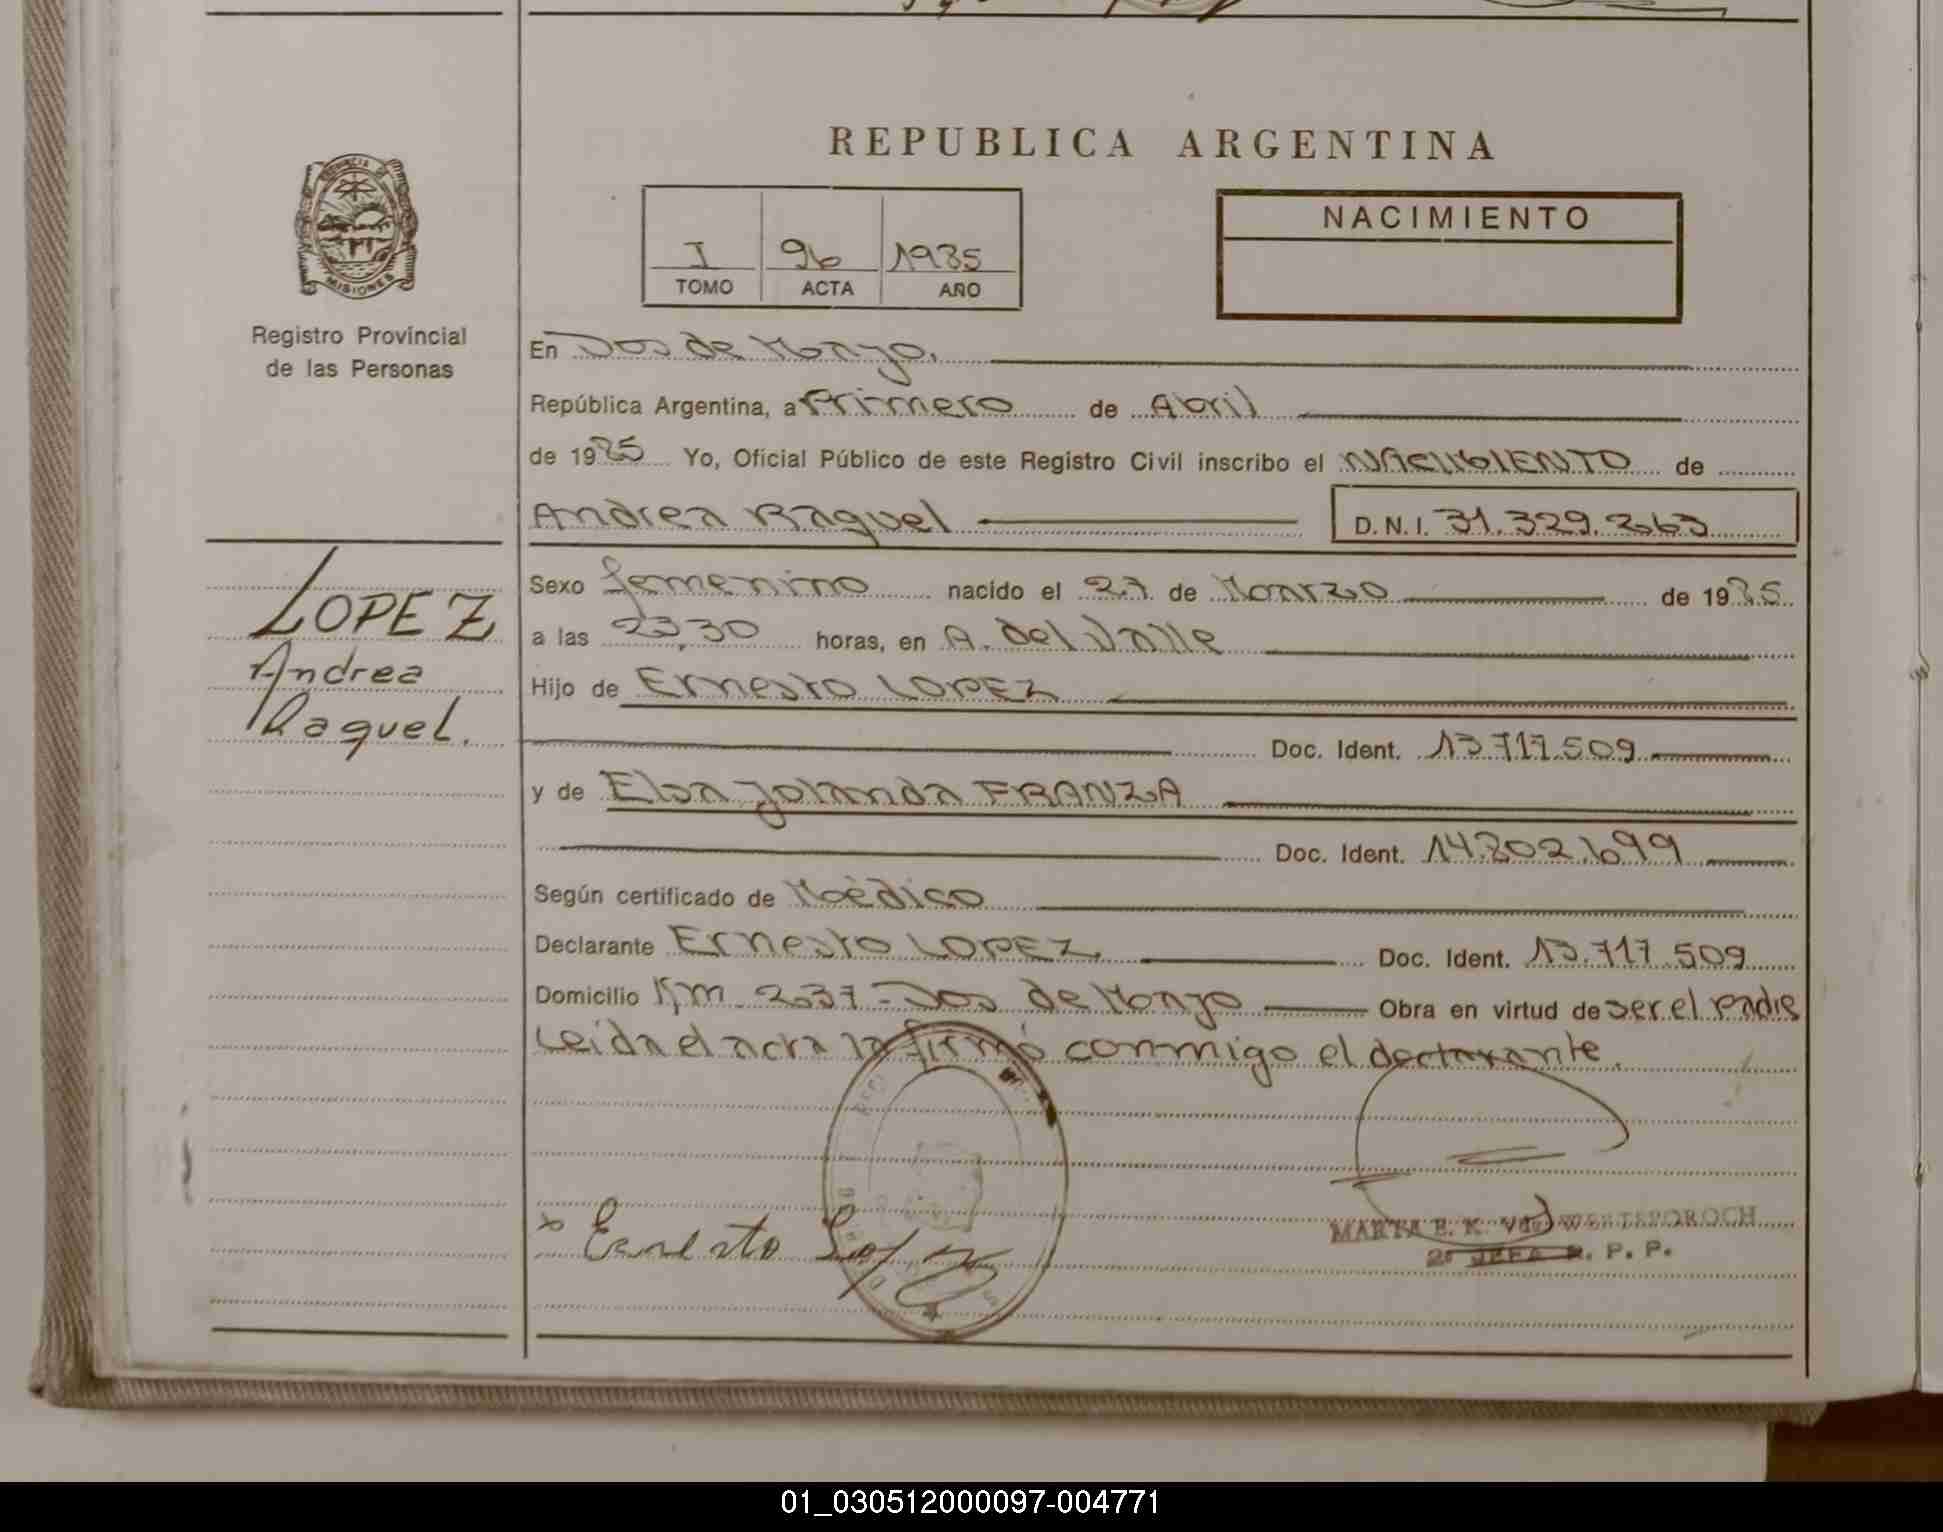 REPUBLICA ARGENTINA
PROVINCIA DE
MISIONES
Registro Provincial
de las Personas
I 96 1985
TOMO ACTA AÑO
NACIMIENTO
En Dos de Mayo.
República Argentina, a Primero de Abril
de 1985 Yo, Oficial Público de este Registro Civil inscribo el NACIMIENTO de
Andrea Raquel D.N.I. 31.329.263
LOPEZ
Andrea
Raquel.
Sexo femenino nacido el 27 de Marzo de 1985
a las 23,30 horas, en A. del Valle
Hijo de Ernesto LOPEZ
Doc. Ident. 13.717.509
y de Elsa Yolanda FRANZA
Doc. Ident. 14.802.699
Según certificado de Médico
Declarante Ernesto LOPEZ Doc. Ident. 13.717.509
Domicilio Km 237 - Dos de Mayo Obra en virtud de ser el padre
Leida el acta la firmó conmigo el declarante.
x Ernesto Lopez
MARTA E. K. Vda
R. P. P.
01_030512000097-004771